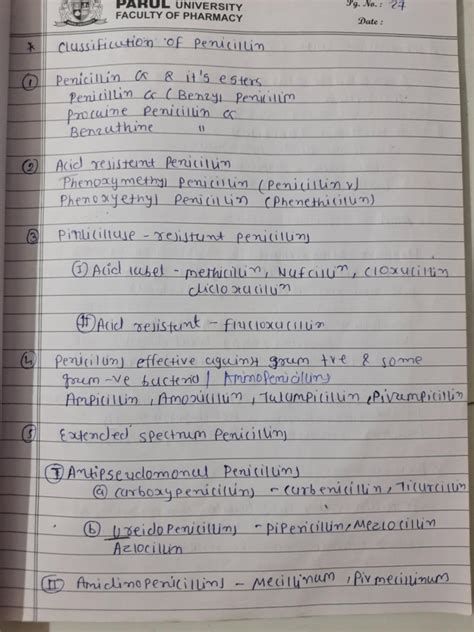 PARUL UNIVERSITY
FACULTY OF PHARMACY
Pg. No.: 27
Date :
* Classification of Penicillin
① Penicillin G & it's esters
Penicillin G (Benzyl Penicillin
Procaine Penicillin G
Benzathine "
② Acid resistant Penicillin
Phenoxymethyl Penicillin (Penicillin V)
Phenoxyethyl Penicillin (Phenethicillin)
③ Pinlicillase - resistant penicillins
(I) Acid label - methicillin, Nafcillin, Cloxacillin
dicloxacillin
(II) Acid resistant - flucloxacillin
④ Penicillins effective against gram +ve & some
gram -ve bacteria / Aminopenicillins
Ampicillin, Amoxicillin, Talampicillin, Pivampicillin
⑤ Extended spectrum Penicillins
(I) Antipseudomonal Penicillins
(a) Carboxypenicillins - Carbenicillin, Ticarcillin
(b) Ureidopenicillins - Pipericillin, Mezlocillin
Azlocillin
(II) Amidinopenicillins - Mecillinam, Pivmecillinam